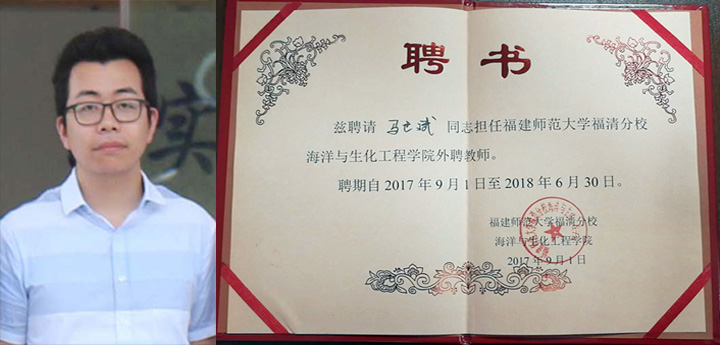 实
聘书
兹聘请 马士斌 同志担任福建师范大学福清分校
海洋与生化工程学院外聘教师。
聘期自 2017 年 9 月 1 日至 2018 年 6 月 30 日。
福建师范大学福清分校
海洋与生化工程学院
2017 年 9 月 1 日